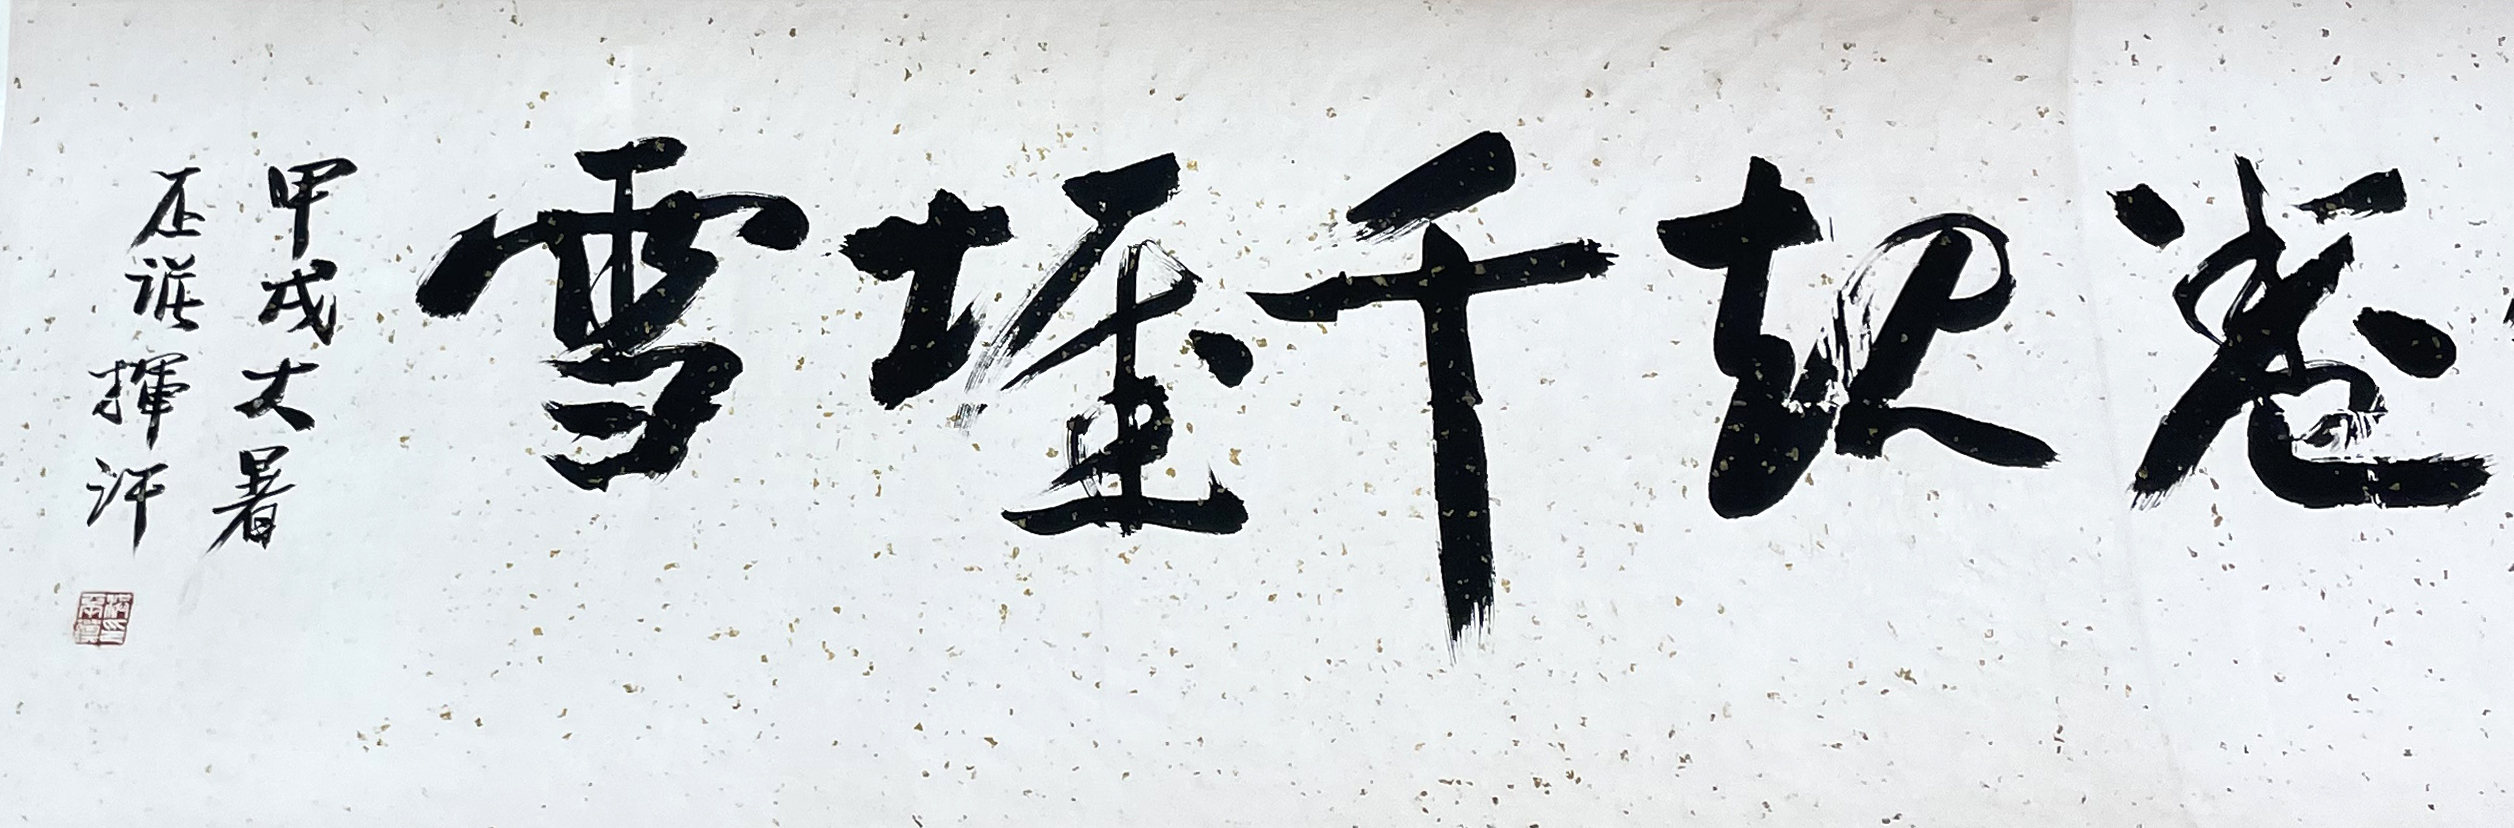 卷起千堆雪
甲戌大暑
丕謨揮汗